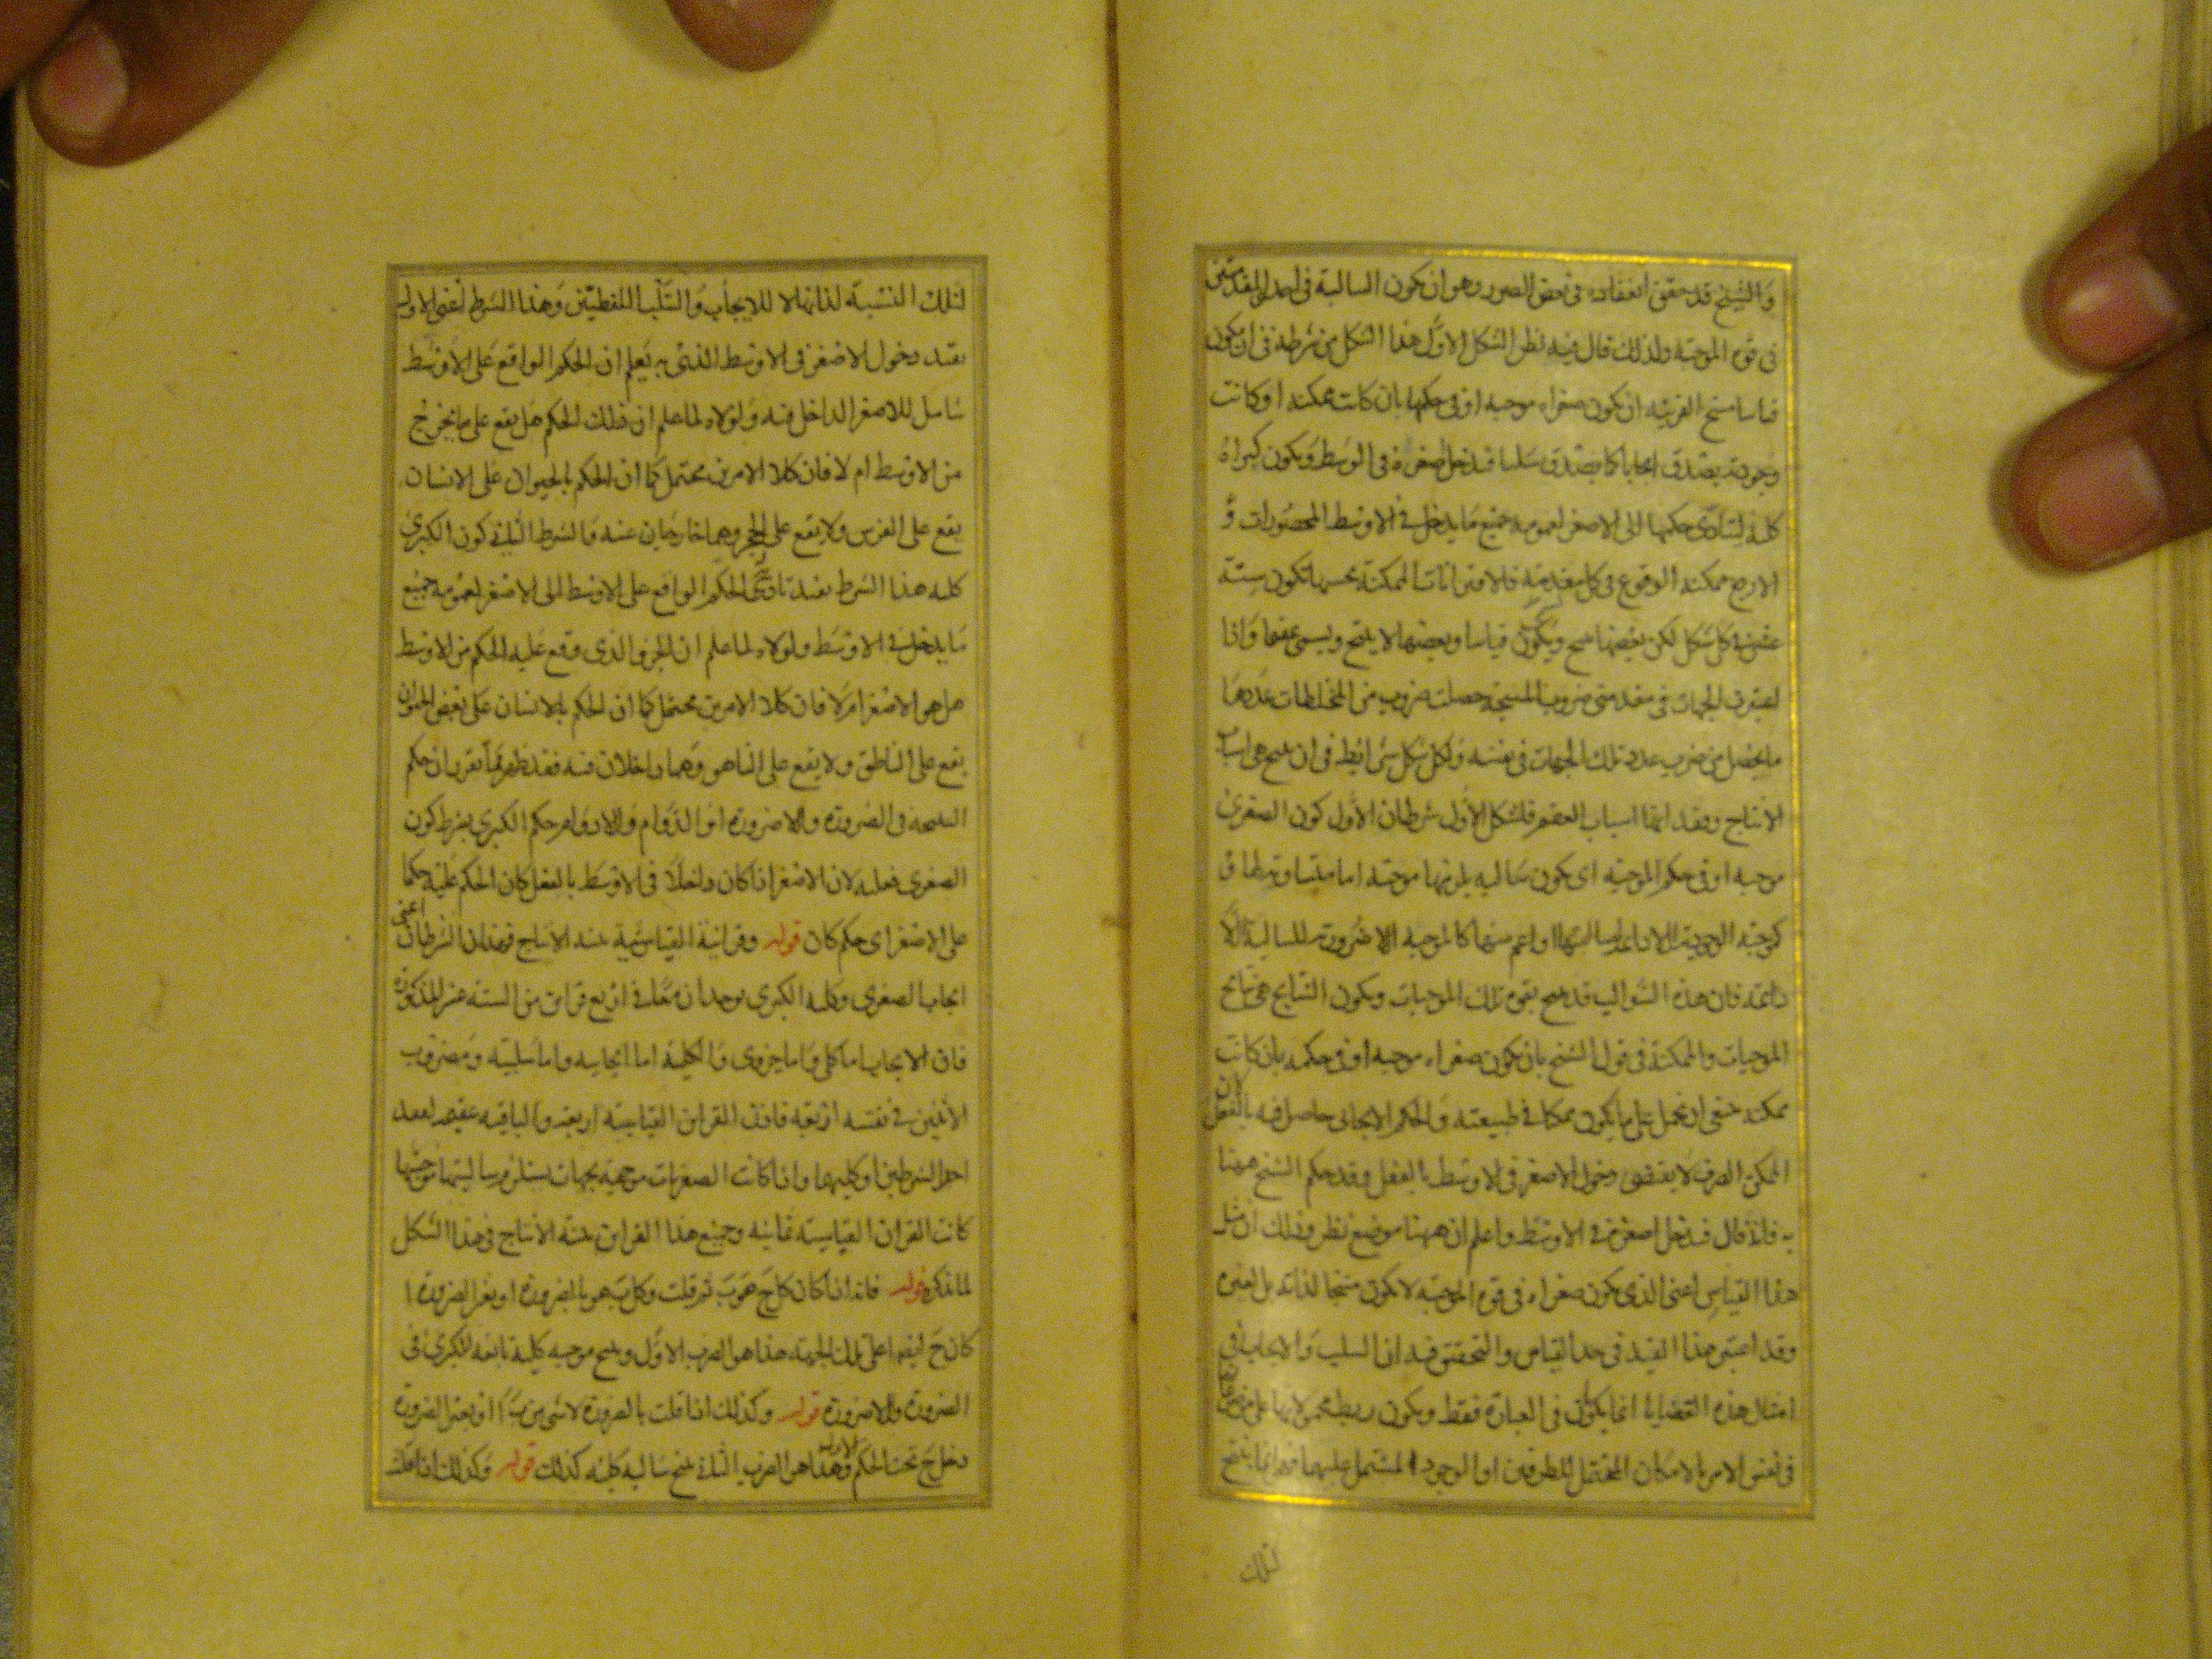 والشيخ قد حقق انعقاده في بعض الصور وهو ان يكون السالبة في احدى المقدمتين
في قوة الموجبة ولذلك قال فيه نظر الشكل الاول هذا الشكل من شرطه في ان يكون
قياسا منتج القرينة ان يكون صغراه موجبة او في حكمها بان كانت ممكنة او كانت
وجودية يصدق ايجابا كما يصدق سلبا فيدخل اصغره في الوسط ويكون كبراه
كلية لتتأدى حكمها الى الاصغر لعمومه جميع ما يدخل في الاوسط المحصورات و
الاربع ممكنة الوقوع في كل مقدمة فالاقترانات الممكنة بحسبها تكون ستة
عشر في كل شكل لكن بعضها منتج ويكون قياسا وبعضها لا ينتج ويسمى عقيما واذا
اعتبرت الجهات في مقدمتي ضروب المنتجة حصلت ضروب من المختلطات عددها
ما يحصل من ضرب عدد تلك الجهات في نفسه ولكل شكل شرايط في ان ينتج هي اسباب
الانتاج وفقدانها اسباب العقم فلشكل الاول شرطان الاول كون الصغرى
موجبة او في حكم الموجبة اى يكون سالبة يلزمها موجبة اما مساوية لها
كموجبة الوجودية اللادايمة لسالبتها او اعم منها كالموجبة اللاضرورية للسالبة اللا
دايمة فان هذه السوالب قد ينتج بقوة تلك الموجبات ويكون النتايج هي نتايج
الموجبات والممكنة في قول الشيخ بان يكون صغراه موجبة او في حكمه بان كانت
ممكنة ينبغي ان تحمل على ما يكون ممكنا في طبيعته والحكم الايجابي حاصل فيه بالفعل لان
الممكن الصرف لا يقتضى دخول الاصغر في الاوسط بالفعل وقد حكم الشيخ ههنا
به فانه قال فيدخل اصغره في الاوسط واعلم ان ههنا موضع نظر وذلك ان مثل
هذا القياس اعنى الذى يكون صغراه في قوة الموجبة لا يكون منتجا لذاته بل لغيره
وقد اعتبر هذا القيد في حد القياس والتحقيق فيه ان السلب والايجاب في
امثال هذه القضايا انما يكون في العبارة فقط ويكون ربط محمولاتها على موضوعاتها
في نفس الامر بالامكان المحتمل للطرفين او الوجود المشتمل عليهما فهو انما ينتج
لتلك
لتلك النسبة لذاتها لا للايجاب والسلب اللفظيين وهذا الشرط اعنى الاول
يفيد دخول الاصغر في الاوسط الذى به يعلم ان الحكم الواقع على الاوسط
شامل للاصغر الداخل فيه ولولاه لما علم ان ذلك الحكم هل يقع على ما يخرج
من الاوسط ام لا فان كلا الامرين محتمل كما ان الحكم بالحيوان على الانسان
يقع على الفرس ولا يقع على الحجر وهما خارجان عنه والشرط الثاني كون الكبرى
كلية هذا الشرط يفيد تأدى الحكم الواقع على الاوسط الى الاصغر لعمومه جميع
ما يدخل في الاوسط ولولاه لما علم ان الجزو الذى وقع عليه الحكم من الاوسط
هل هو الاصغر ام لا فان كلا الامرين محتمل كما ان الحكم بالانسان على بعض الحيوان
يقع على الناطق ولا يقع على الناهق وهما داخلان فيه فقد ظهر مما تقرر ان حكم
النتيجة في الضرورة واللاضرورة او الدوام واللادوام حكم الكبرى بشرط كون
الصغرى فعلية لان الاصغر اذا كان داخلا في الاوسط بالفعل كان الحكم عليه حكما
على الاصغر اى حكم كان قوله وقرانية القياسية بينة الانتاج فهذان الشرطان اعنى
ايجاب الصغرى وكلية الكبرى يوجدان معا في اربع قراين من الستة عشر المذكورة
فان الايجاب اما كلى واما جزوى والكلية اما ايجابية واما سلبية ومضروب
الاثنين في نفسه اربعة فاذن القراين القياسية اربعة والباقية عقيمة لفقد
احد الشرطين او كليهما واذا كانت الصغريات موجهة بجهات يستلزم سالبتها موجبتها
كانت القراين القياسية ثمانية وجميع هذا القراين بينة الانتاج في هذا الشكل
لما نذكره قوله فانه اذا كان كل ج هو ب ثم قلت وكل ب هو بالضرورة او بغير الضرورة ا
كان ج ايضا ا على تلك الجهة هذا هو الضرب الاول وينتج موجبة كلية تابعة للكبرى في
الضرورة واللاضرورة قوله وكذلك اذا قلت بالضرورة لا شى من ب ا او بغير الضرورة
دخل ج تحت الحكم الاول وهذا هو الضرب الثاني ينتج سالبة كلية كذلك قوله وكذلك اذا قلت